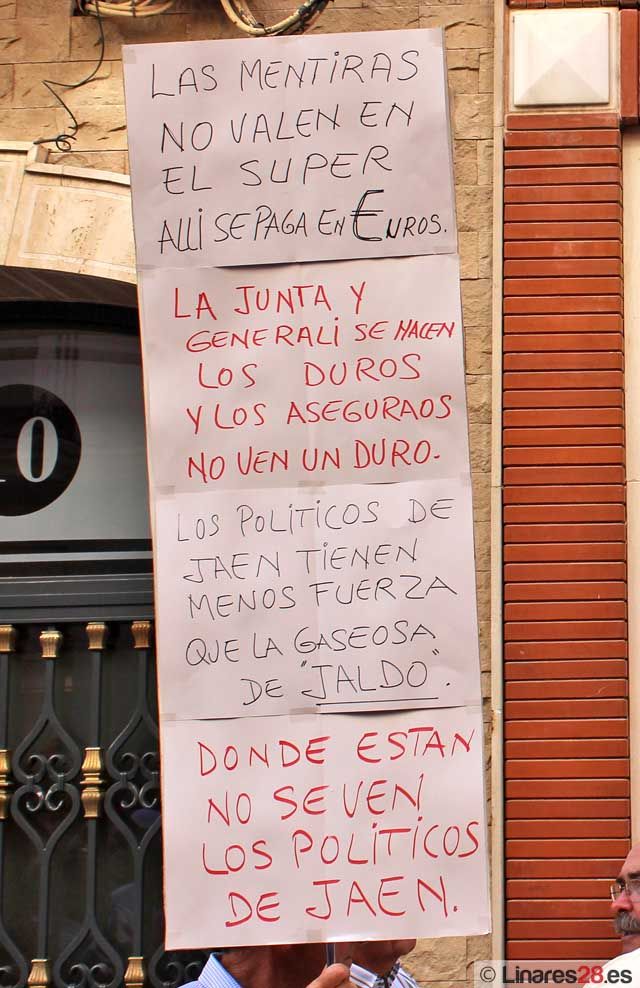 LAS MENTIRAS
NO VALEN EN
EL SUPER
ALLI SE PAGA EN EUROS.
LA JUNTA Y
GENERALI SE HACEN
LOS DUROS
Y LOS ASEGURAOS
NO VEN UN DURO.
LOS POLITICOS DE
JAEN TIENEN
MENOS FUERZA
QUE LA GASEOSA
DE "JALDO".
DONDE ESTAN
NO SE VEN
LOS POLITICOS
DE JAEN.
0
© Linares28.es